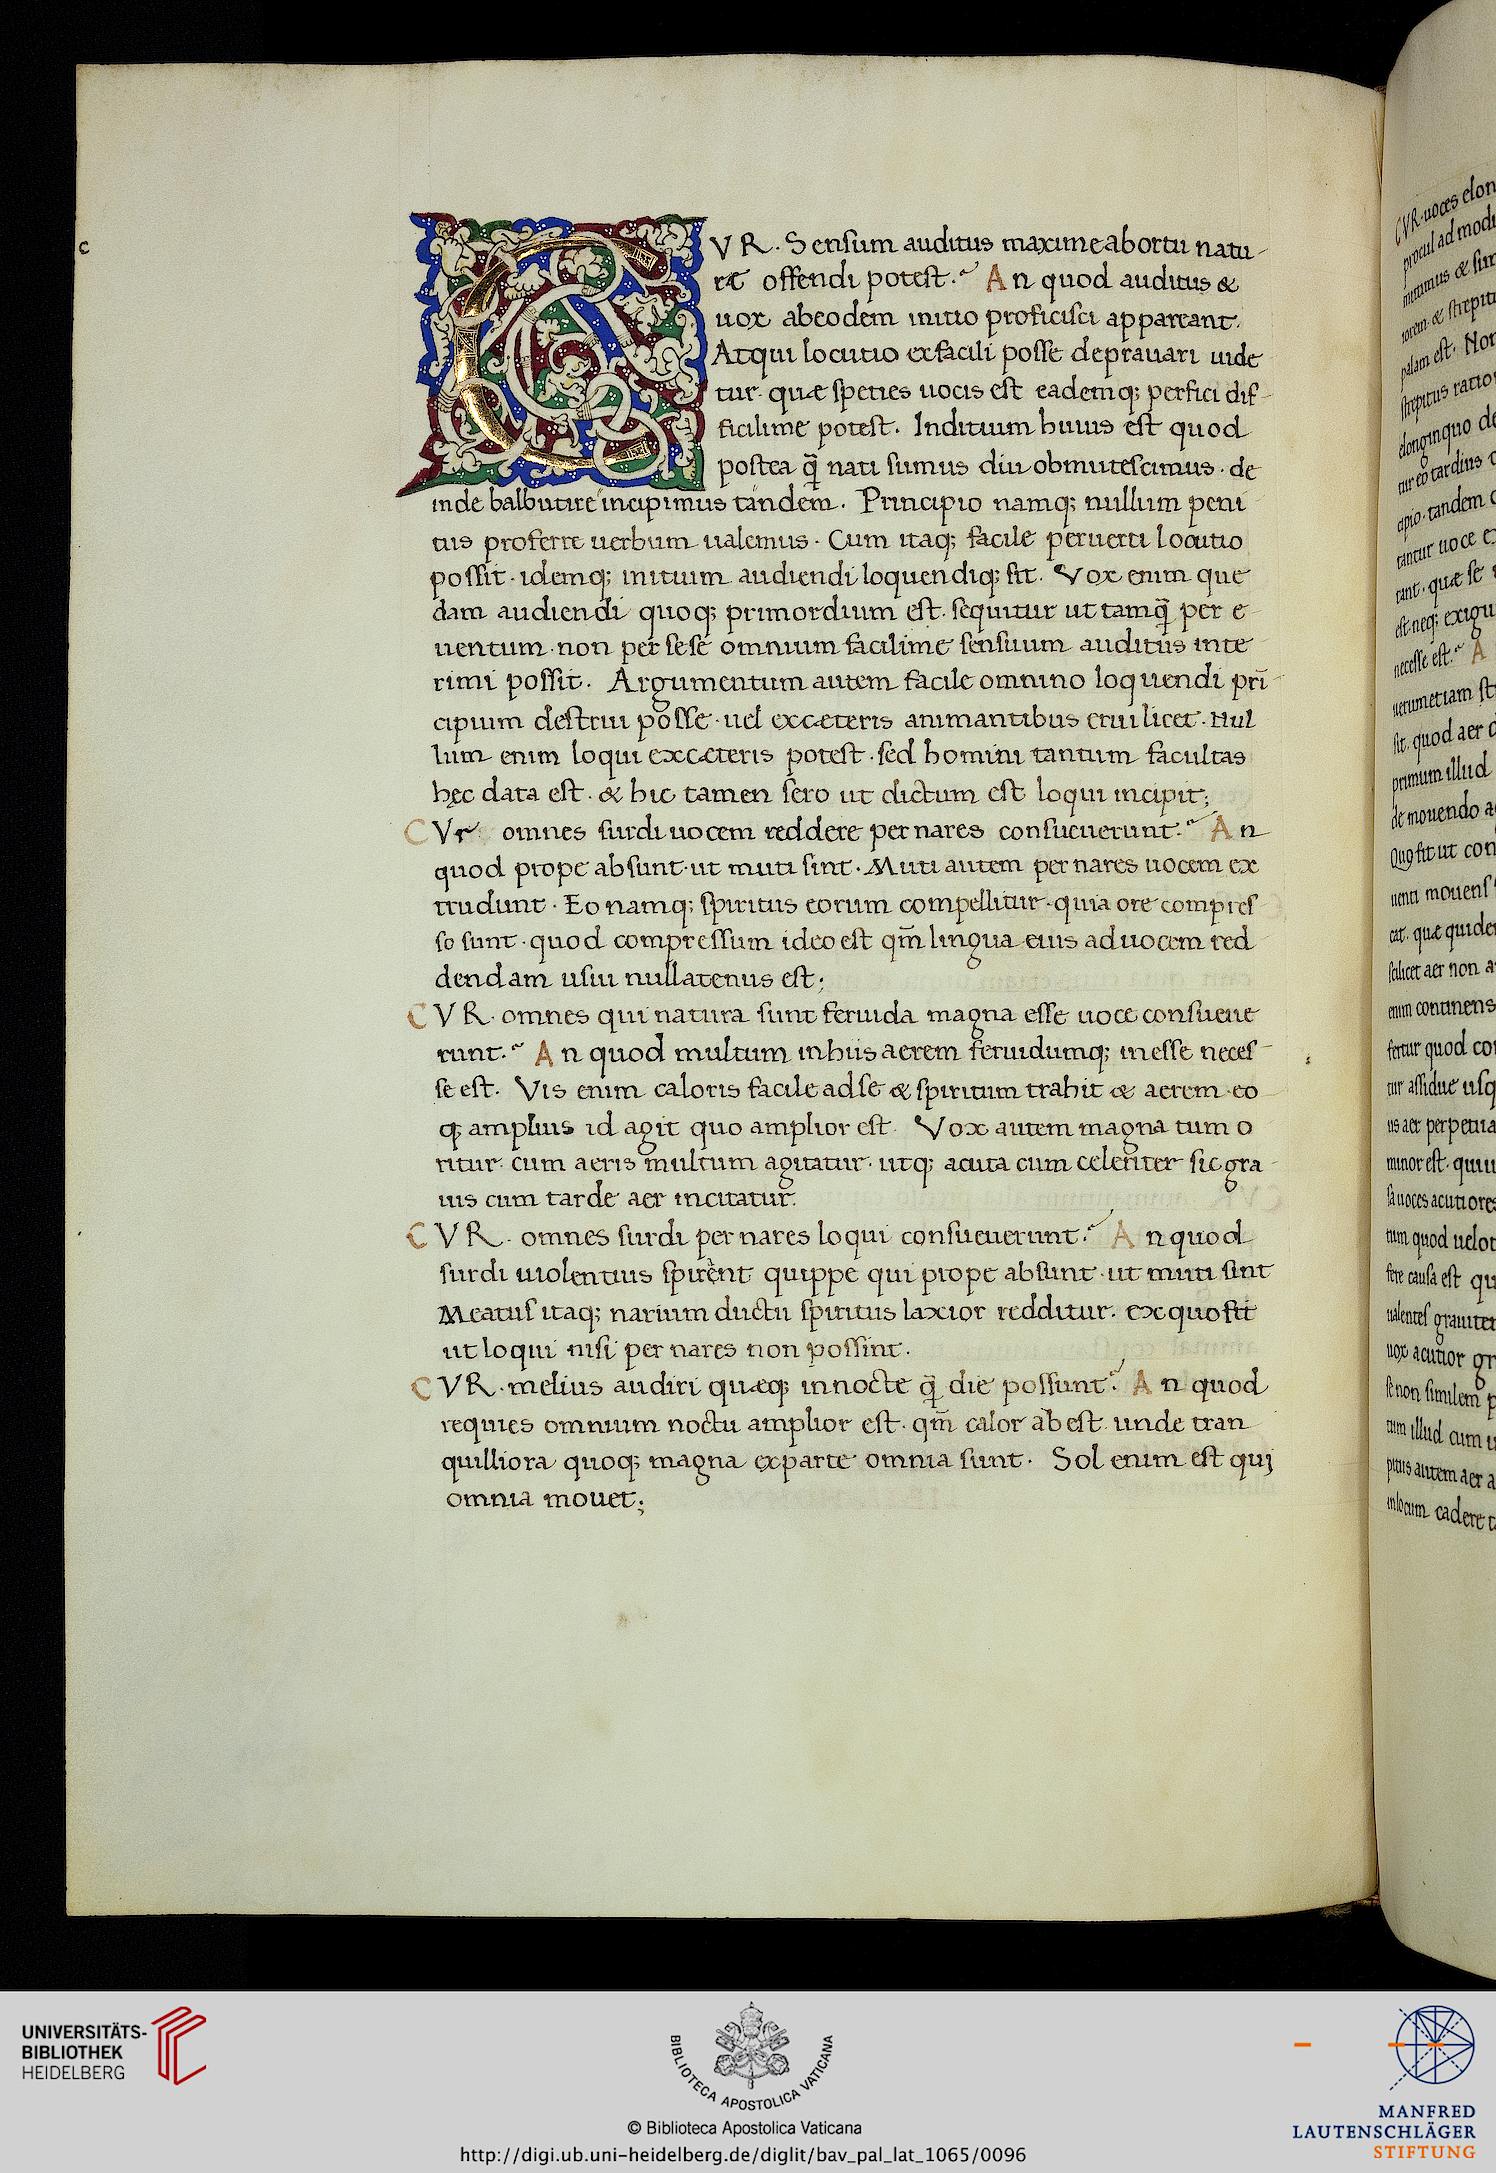 c
CVR. Sensum auditus maxime ab ortu natu-
ræ offendi potest. An quod auditus &
uox ab eodem initio proficisci appareant.
Atqui locutio ex facili posse deprauari uide
tur. quæ speties uocis est eademq; perfici dif-
ficilime potest. Inditium huius est quod
postea q̃ nati sumus diu obmutescimus. de
inde balbutire incipimus tandem. Principio namq; nullum peni
tus proferre uerbum ualemus. Cum itaq; facile peruerti locutio
possit. idemq; initium audiendi loquendiq; sit. Vox enim que
dam audiendi quoq; primordium est. sequitur ut tamq̃ per e-
uentum. non per se se omnium facilime sensuum auditus inte
rimi possit. Argumentum autem facile omnino loquendi prī-
cipium destrui posse. uel ex cæteris animantibus erui licet. Nul
lum enim loqui ex cæteris potest. sed homini tantum facultas
hęc data est. & hic tamen sero ut dictum est loqui incipit;
CVr omnes surdi uocem reddere per nares consueuerunt. An
quod prope absunt. ut muti sint. Muti autem per nares uocem ex
trudunt. Eo namq; spiritus eorum compellitur. quia ore compres-
so sunt. quod compressum ideo est qm̄ lingua eius ad uocem red
dendam usui nullatenus est;
CVR. omnes qui natura sunt feruida magna esse uoce consueue
runt. An quod multum in hiis aerem feruidumq; inesse neces-
se est. Vis enim caloris facile ad se & spiritum trahit & aerem. eo
q; amplius id agit quo amplior est. Vox autem magna tum o
ritur. cum aeris multum agitatur. utq; acuta cum celeriter sic gra-
uis cum tarde aer incitatur.
CVR. omnes surdi per nares loqui consueuerunt. An quod
surdi uiolentius spirent quippe qui prope absunt. ut muti sint
Meatus itaq; narium ductu spiritus laxior redditur. ex quo fit
ut loqui nisi per nares non possint.
CVR. melius audiri quæq; in nocte q̃ die possunt. An quod
requies omnium noctu amplior est. qm̄ calor abest. unde tran
quilliora quoq; magna ex parte omnia sunt. Sol enim est qui
omnia mouet;
CVR. uoces elon
procul ad modu
palam est. Non
strepitus ratio
elonginquo de
cipio. tandem
est. neq; exigu
necesse est. A
sit. quod aer
primum illud
de mouendo a
Quo fit ut con
cat. quæ quide
scilicet aer non a
enim continens
fertur quod co
tur assidue usq
us aer perpetua
minor est. quiu
sa uoces acutiores
tum quod ueloc
fere causa est qu
ualentes grauiter
uox acutior gr
se non similem p
tum illud cum u
pitus autem aer a
in locum cadere
UNIVERSITÄTS-
BIBLIOTHEK
HEIDELBERG
BIBLIOTECA APOSTOLICA VATICANA
© Biblioteca Apostolica Vaticana
http://digi.ub.uni-heidelberg.de/diglit/bav_pal_lat_1065/0096
MANFRED
LAUTENSCHLÄGER
STIFTUNG